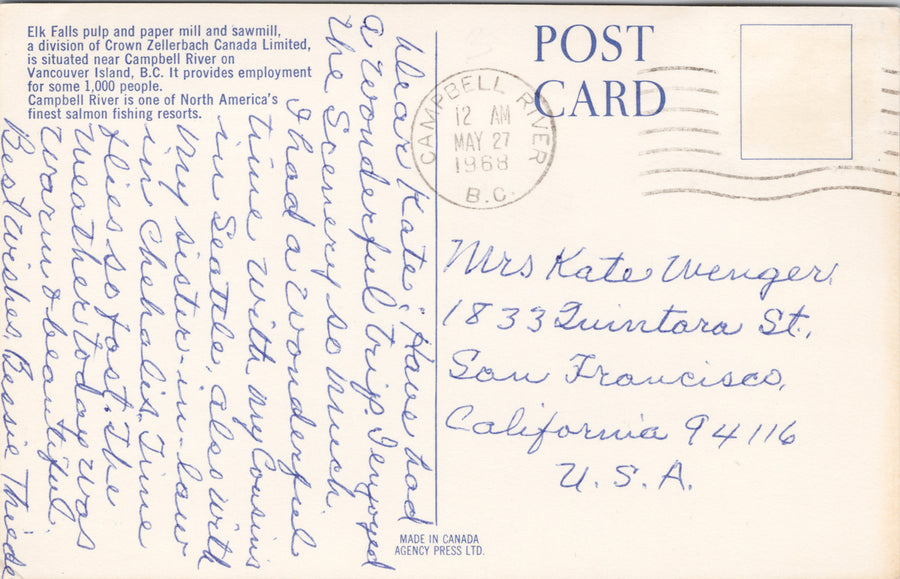 Elk Falls pulp and paper mill and sawmill,
a division of Crown Zellerbach Canada Limited,
is situated near Campbell River on
Vancouver Island, B.C. It provides employment
for some 1,000 people.
Campbell River is one of North America's
finest salmon fishing resorts.
POST
CARD
CAMPBELL RIVER
12 AM
MAY 27
1968
B.C.
Dear Kate; Have had
a wonderful trip. Injoyed
the Scenery so much
I had a wonderful
time with my Cousins
in Seattle, also with
my sister-in-law
in Chehalis. Time
flies so fast. The
Weather today was
warm & beautiful.
Best Wishes, Bessie Thiede
Mrs Kate Wenger,
1833 Quintara St.,
San Francisco,
California 94116
U.S.A.
MADE IN CANADA
AGENCY PRESS LTD.